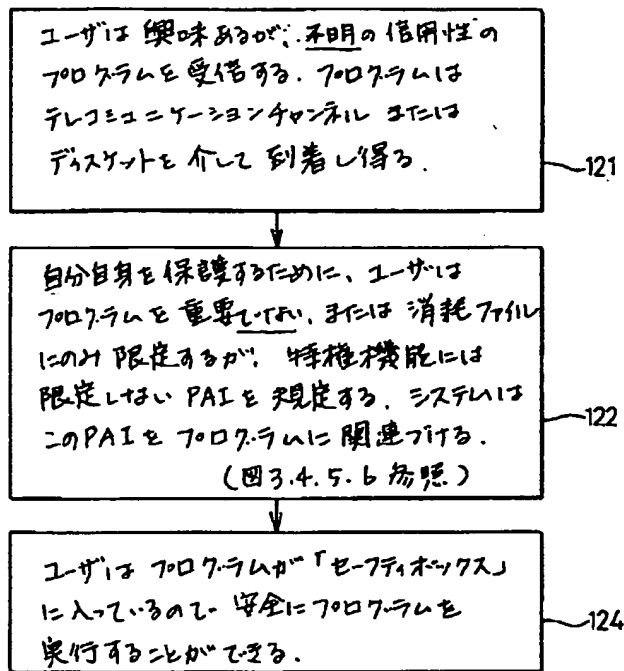 ユーザは 興味あるが、不明の信用性の
プログラムを受信する. プログラムは
テレコミュニケーションチャンネル または
ディスケットを介して到着し得る.
121
自分自身を保護するために、ユーザは
プログラムを重要でない、または消耗ファイル
にのみ限定するが、特権機能には
限定しない PAIを規定する. システムは
このPAIをプログラムに関連づける.
(図3.4.5.6参照)
122
ユーザは プログラムが「セーフティボックス」
に入っているので 安全にプログラムを
実行することができる.
124